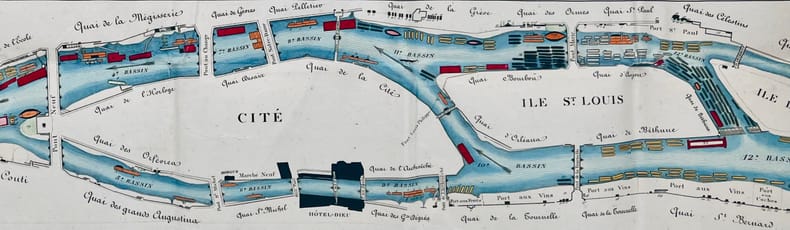 de l'Ecole
Quai de la Mégisserie
Quai de Gèvres
Quai Pelletier
Quai de la Grève
Quai des Ormes
Quai St Paul
Port St Paul
Quai des Célestins
Pont Neuf
6e BASSIN
Pont au Change
7e BASSIN
Pont Notre Dame
8e BASSIN
11e BASSIN
Quai de l'Horloge
Quai Desaix
Quai de la Cité
Pont Louis Philippe
Quai Bourbon
Quai d'Anjou
CITÉ
ILE ST LOUIS
ILE
Quai d'Orléans
Quai de Béthune
Conti
Quai des Orfèvres
Quai des grands Augustins
5e BASSIN
Marché Neuf
Quai St Michel
HÔTEL-DIEU
Quai de l'Archevêché
9e BASSIN
Quai des Gds Degrés
10e BASSIN
BASSIN
12e BASSIN
Port aux Tuiles
Quai de la Tournelle
Port aux Vins
Quai de la Tournelle
Port aux Vins
Port aux Vins
Quai St Bernard
Port aux Coches